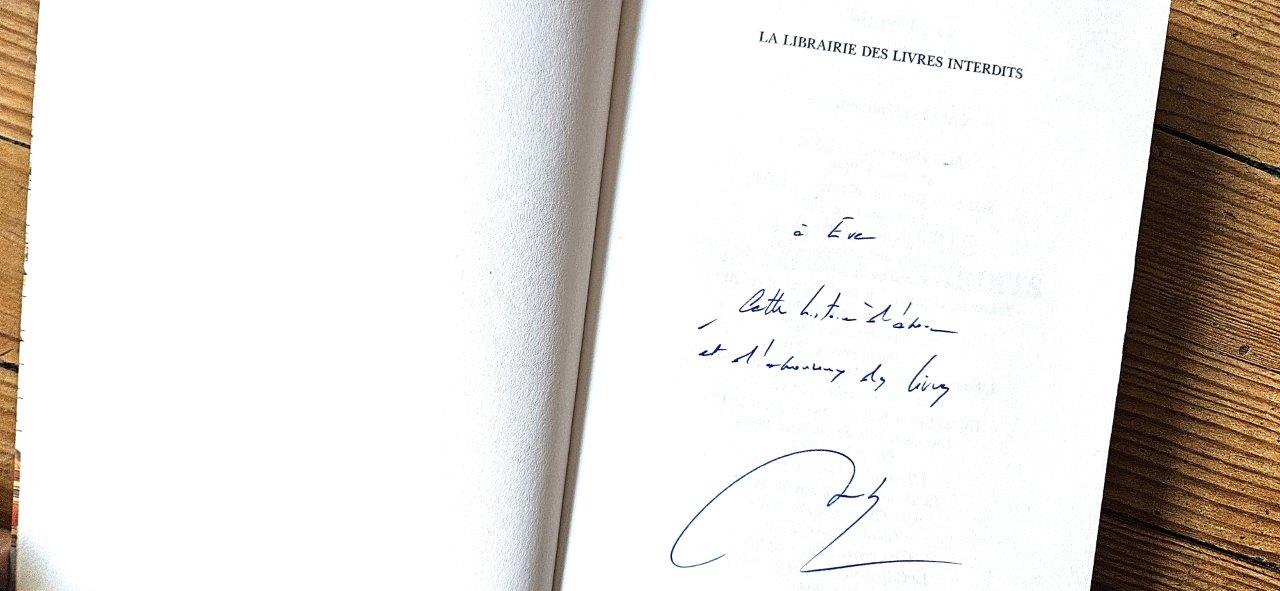 LA LIBRAIRIE DES LIVRES INTERDITS
à Eve
Cette histoire d'amour
et d'amoureux des livres